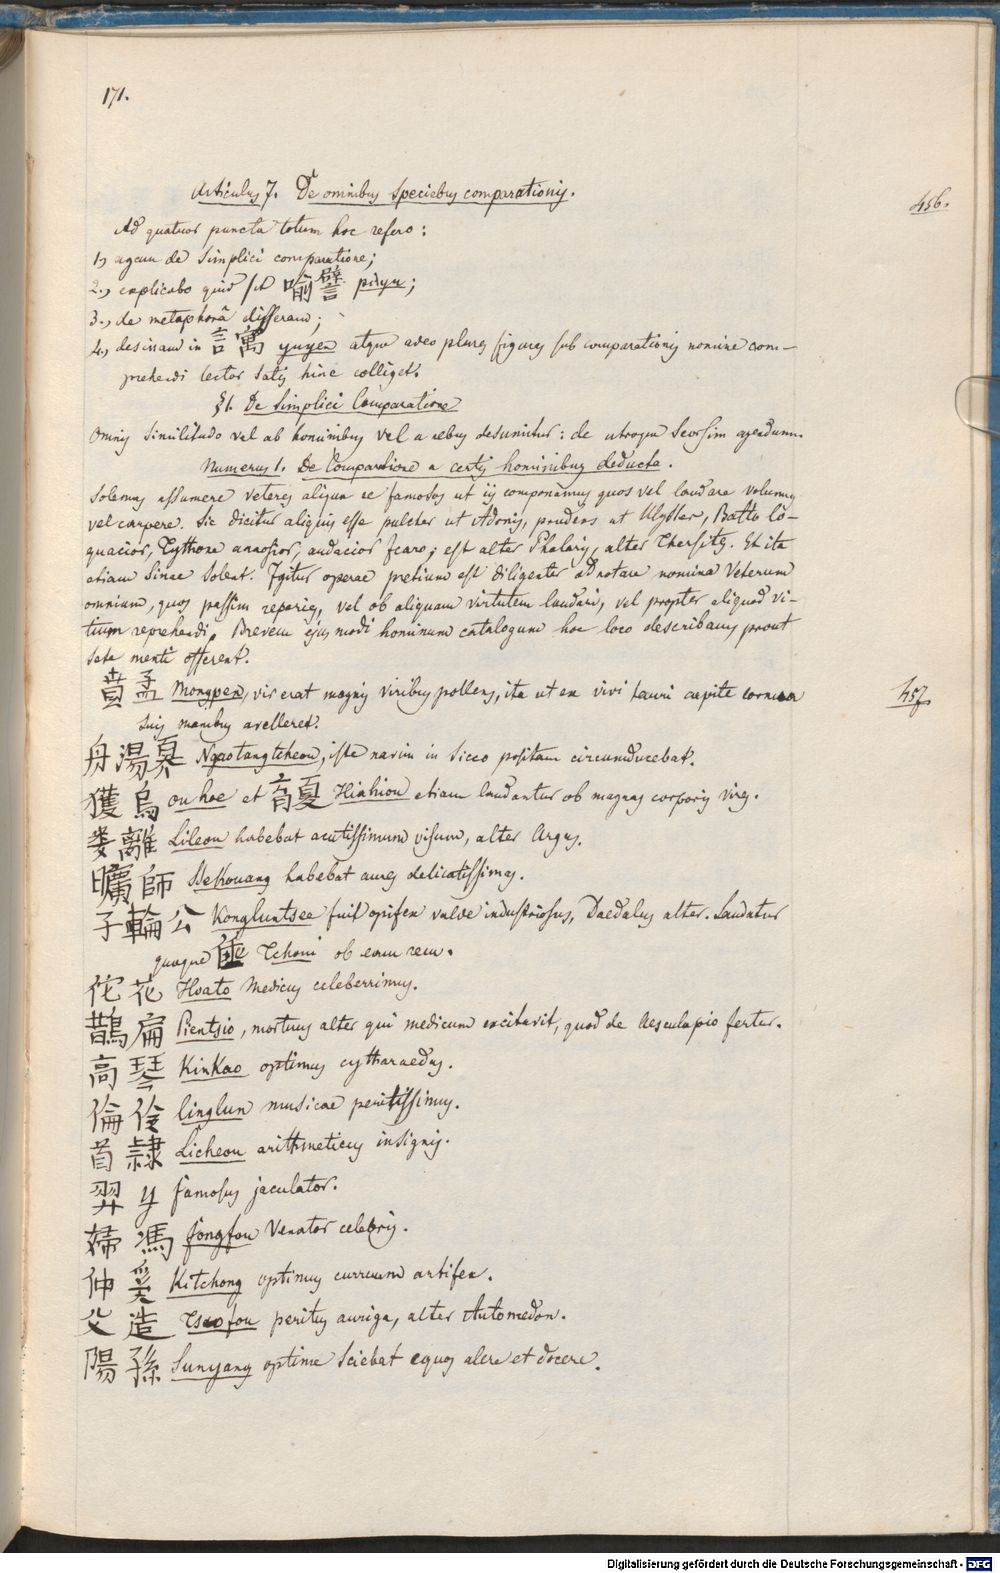 171.
Articulus 7. De omnibus speciebus comparationis.
456.
Ad quatuor puncta totum hoc refero:
1, agam de simplici comparatione;
2., explicabo quid sit 喻譬 piyu;
3., de metaphorâ disseram;
4, desinam in 言寓 yuyen atque adeo plures figuras sub comparationis nomine com-
prehendi lector satis hinc colliget.
§1. De Simplici Comparatione
Omnis similitudo vel ab hominibus vel a rebus desumitur: de utroque seorsim agendum.
Numerus 1. De Comparatione a certis hominibus deducta.
Solemus assumere veteres aliqua re famosos ut iis componamus quos vel laudare volumus
vel carpere. Sic dicitur aliquis esse pulcher ut Adonis, prudens ut Ulysses, Batto lo-
quacior, Tythone annosior, audacior Icaro; est alter Phalaris, alter Thersites. Et ita
etiam Sinae solent. Igitur operae pretium est diligenter adnotare nomina Veterum
omnium, quos passim reperies, vel ob aliquam virtutem laudari, vel propter aliquod vi-
tium reprehendi. Brevem ejusmodi hominum catalogum hoc loco describam, prout
sese menti offerent.
賁孟 Mongpen, vir erat magnis viribus pollens, ita ut ex vivi tauri capite cornua
457.
suis manibus avelleret.
舟湯奡 Ngaotangtcheou, iste navim in sicco positam circumducebat.
獲烏 ou hoe et 育夏 Hiahiou etiam laudantur ob magnas corporis vires.
婁離 Lileou habebat acutissimum visum, alter Argus.
曠師 Ssekouang habebat aures delicatissimas.
子輪公 Kongluntsee fuit opifex valde industriosus, Daedalus alter. Laudatur
quoque 倕 Tchoui ob eam rem.
佗花 Hoato Medicus celeberrimus.
鵲扁 Pientsio, mortuus alter qui medicum excitavit, quod de Aesculapio fertur.
高琴 KinKao optimus cytharaedus.
倫伶 linglun musicae peritissimus.
首隸 Licheou arithmeticus insignis.
羿 y famosus jaculator.
婦馮 fongfou Venator celebris.
仲奚 Kitchong optimus curruum artifex.
父造 Tsaofou peritus auriga, alter Automedon.
陽孫 Sunyang optime sciebat equos alere et docere.
Digitalisierung gefördert durch die Deutsche Forschungsgemeinschaft - DFG